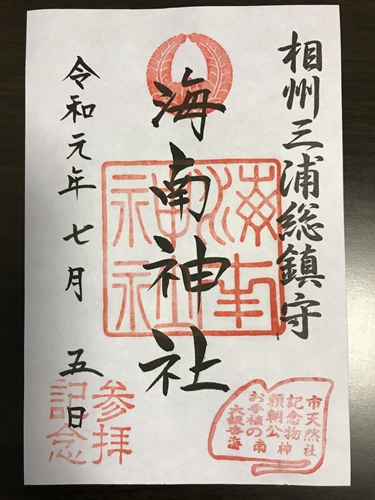 相州三浦総鎮守
海南神社
海南神社
令和元年七月五日
参拝
記念
市天然
記念物
頼朝公
お手植の
大銀杏
海南神社